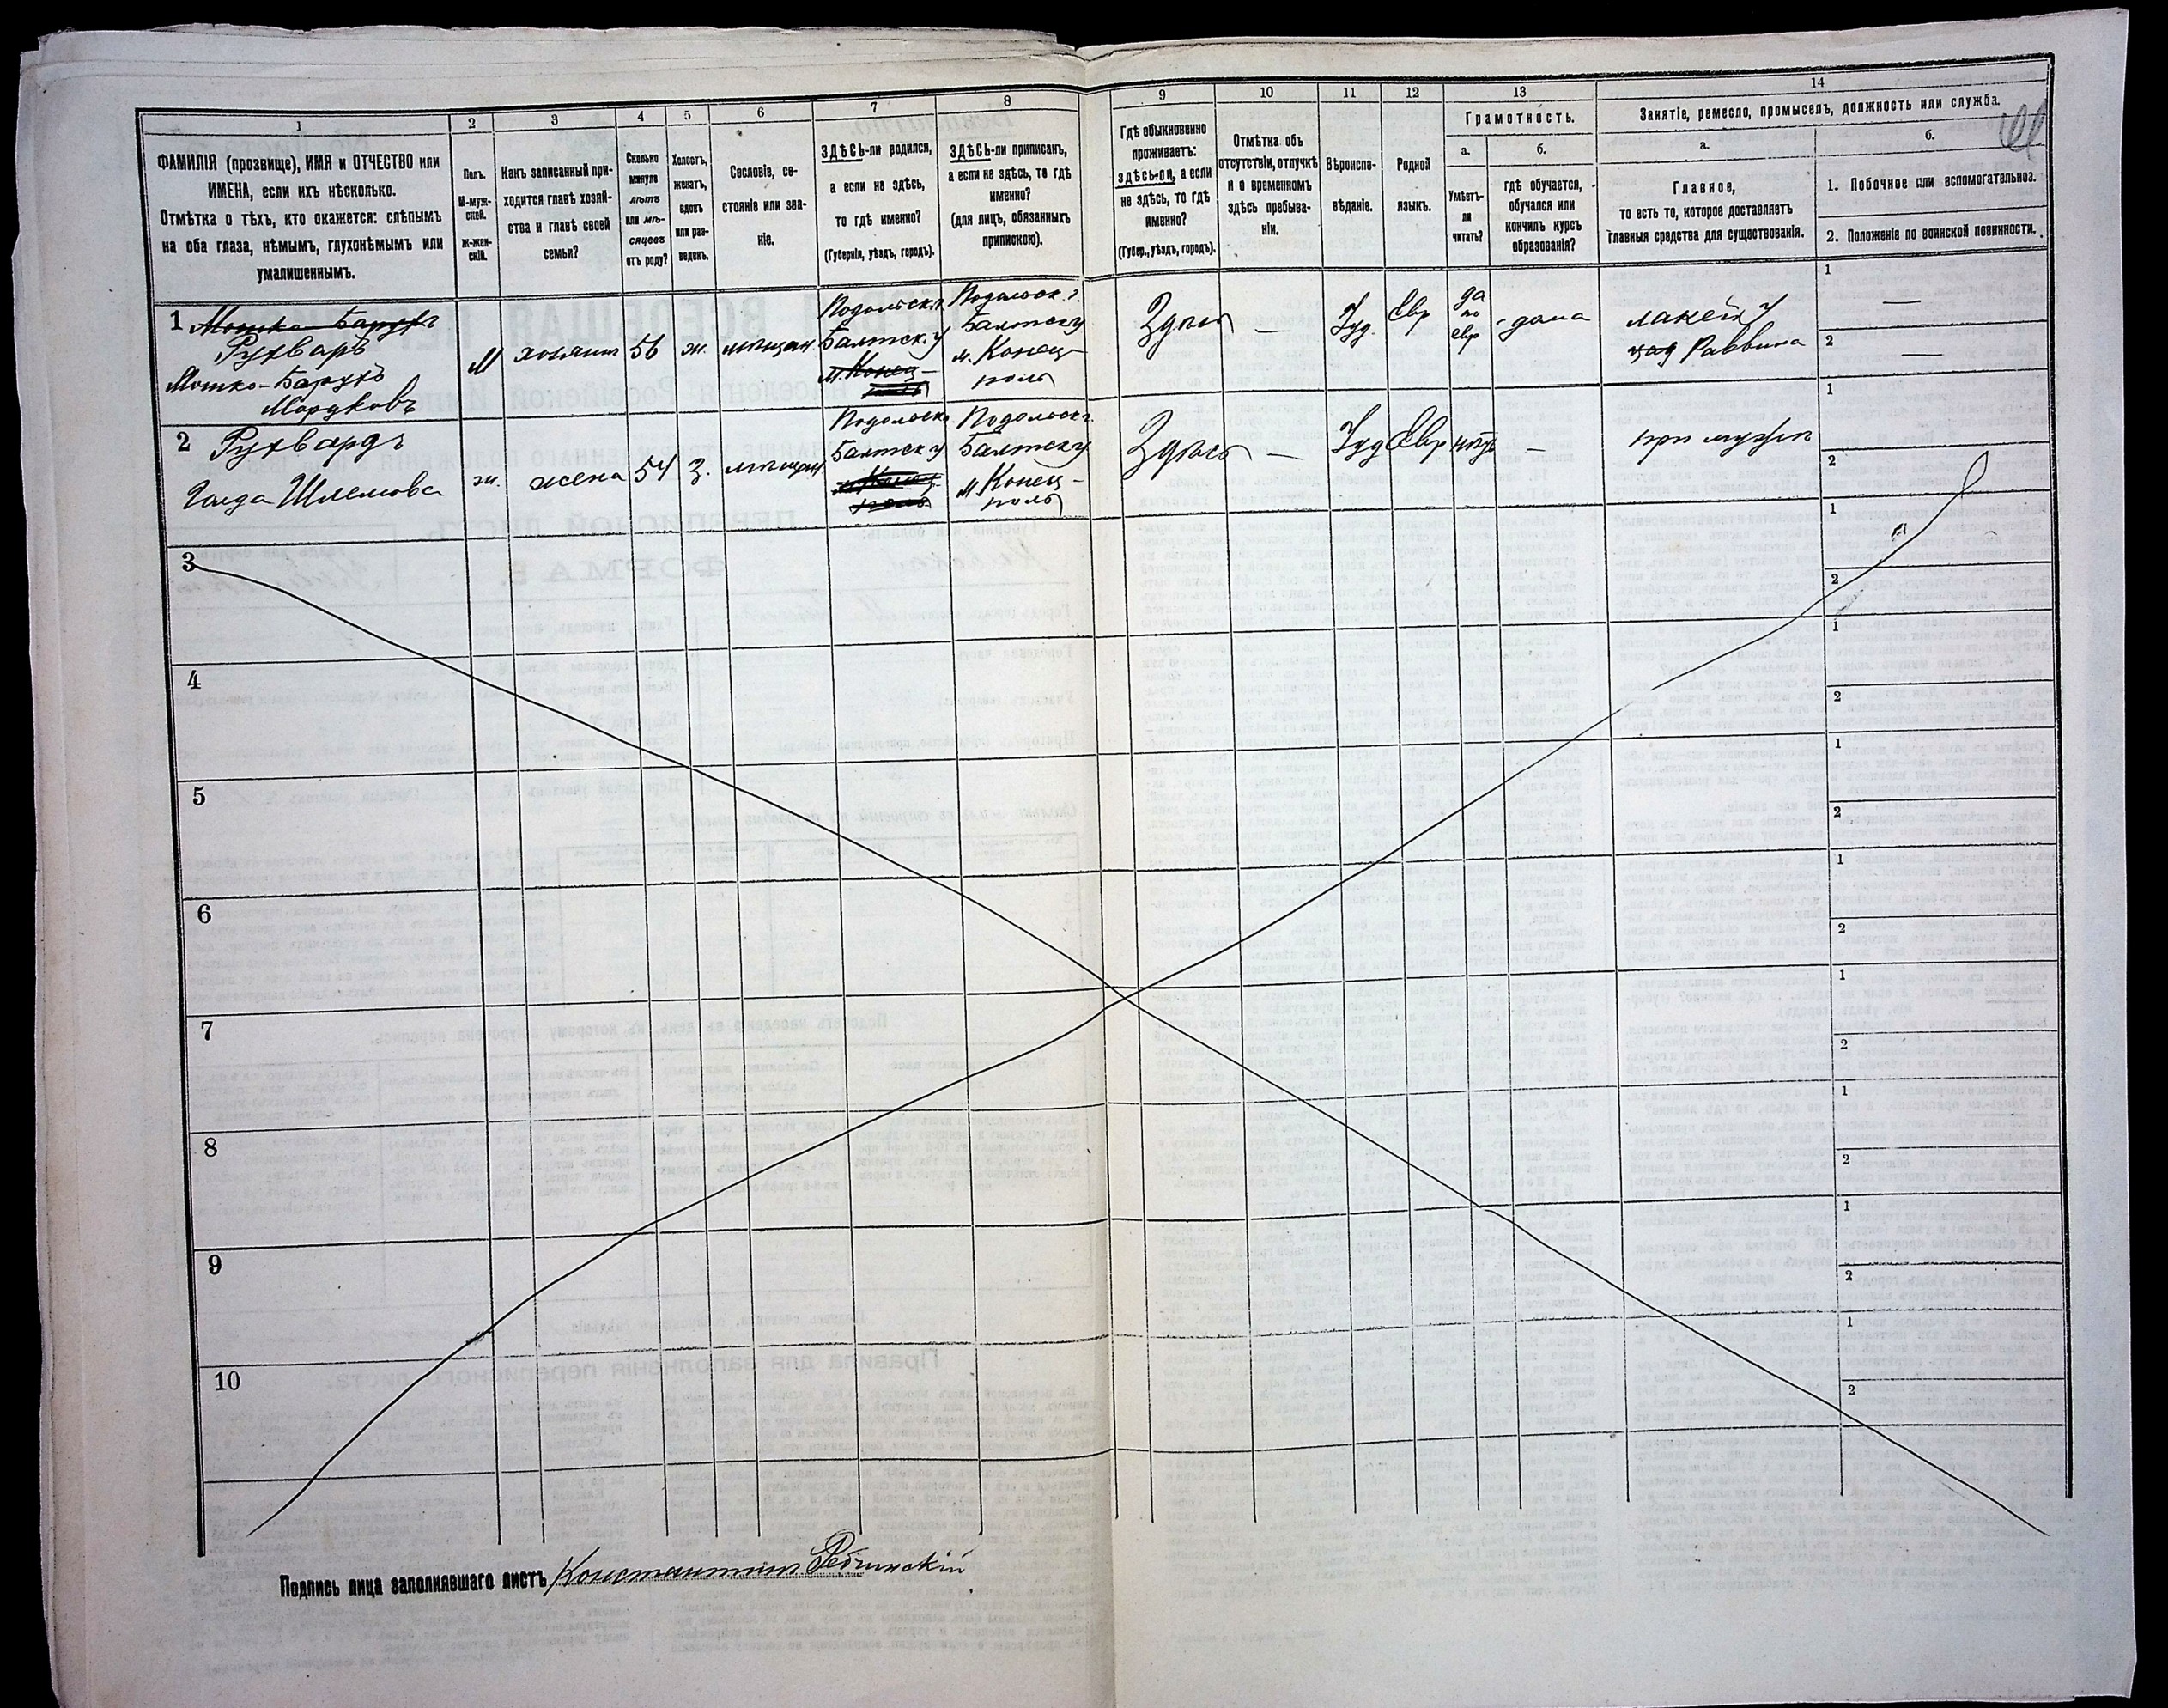 1 2 3 4 5 6 7 8 9 10 11 12 13 14
ФАМИЛІЯ (прозвище), ИМЯ и ОТЧЕСТВО или
ИМЕНА, если ихъ нѣсколько.
Отмѣтка о тѣхъ, кто окажется: слѣпымъ
на оба глаза, нѣмымъ, глухонѣмымъ или
умалишеннымъ.
Полъ.
М-муж-
ской.
Ж-жен-
скій.
Какъ записанный при-
ходится главѣ хозяй-
ства и главѣ своей
семьи?
Сколько
минуло
лѣтъ
или мѣ-
сяцевъ
отъ роду?
Холостъ,
женатъ,
вдовъ
или раз-
веденъ.
Сословіе, со-
стояніе или зва-
ніе.
ЗДѢСЬ-ли родился,
а если не здѣсь,
то гдѣ именно?
(Губернія, уѣздъ, городъ).
ЗДѢСЬ-ли приписанъ,
а если не здѣсь, то гдѣ
именно?
(для лицъ, обязанныхъ
припискою).
Гдѣ обыкновенно
проживаетъ:
здѣсь-ли, а если
не здѣсь, то гдѣ
именно?
(Губер., уѣздъ, городъ).
Отмѣтка объ
отсутствіи, отлучкѣ
и о временномъ
здѣсь пребыва-
ніи.
Вѣроиспо-
вѣданіе.
Родной
языкъ.
Грамотность.
а.
Умѣетъ-
ли
читать?
б.
гдѣ обучается,
обучался или
кончилъ курсъ
образованія?
Занятіе, ремесло, промыселъ, должность или служба.
а.
Главное,
то есть то, которое доставляетъ
главныя средства для существованія.
б.
1. Побочное или вспомогательное.
2. Положеніе по воинской повинности.
1 Мошко-Барухъ
Рухваръ
Мошко-Барухъ
Мордковъ
М
хозяинъ
56
ж.
мѣщан.
Подольск. г.
Балтск. у
м. Конец-
Подольск. г.
Балтск у
м. Конец-
поль
Здѣсь
—
Іуд.
Евр
да
по
евр
дома
лакей у
Раввина
1 —
2 —
2 Рухвардъ
Голда Шлемова
ж.
жена
54
З.
мѣщан
Подольск г
Балтск у
м. Конец-
поль
Подольск г.
Балтск у
м. Конец-
поль
Здѣсь
—
Іуд
Евр
нѣтъ
—
при мужѣ
1
2
3
1
2
4
1
2
5
1
2
6
1
2
7
1
2
8
1
2
9
1
2
10
1
2
Подпись лица заполнявшаго листъ Константинъ